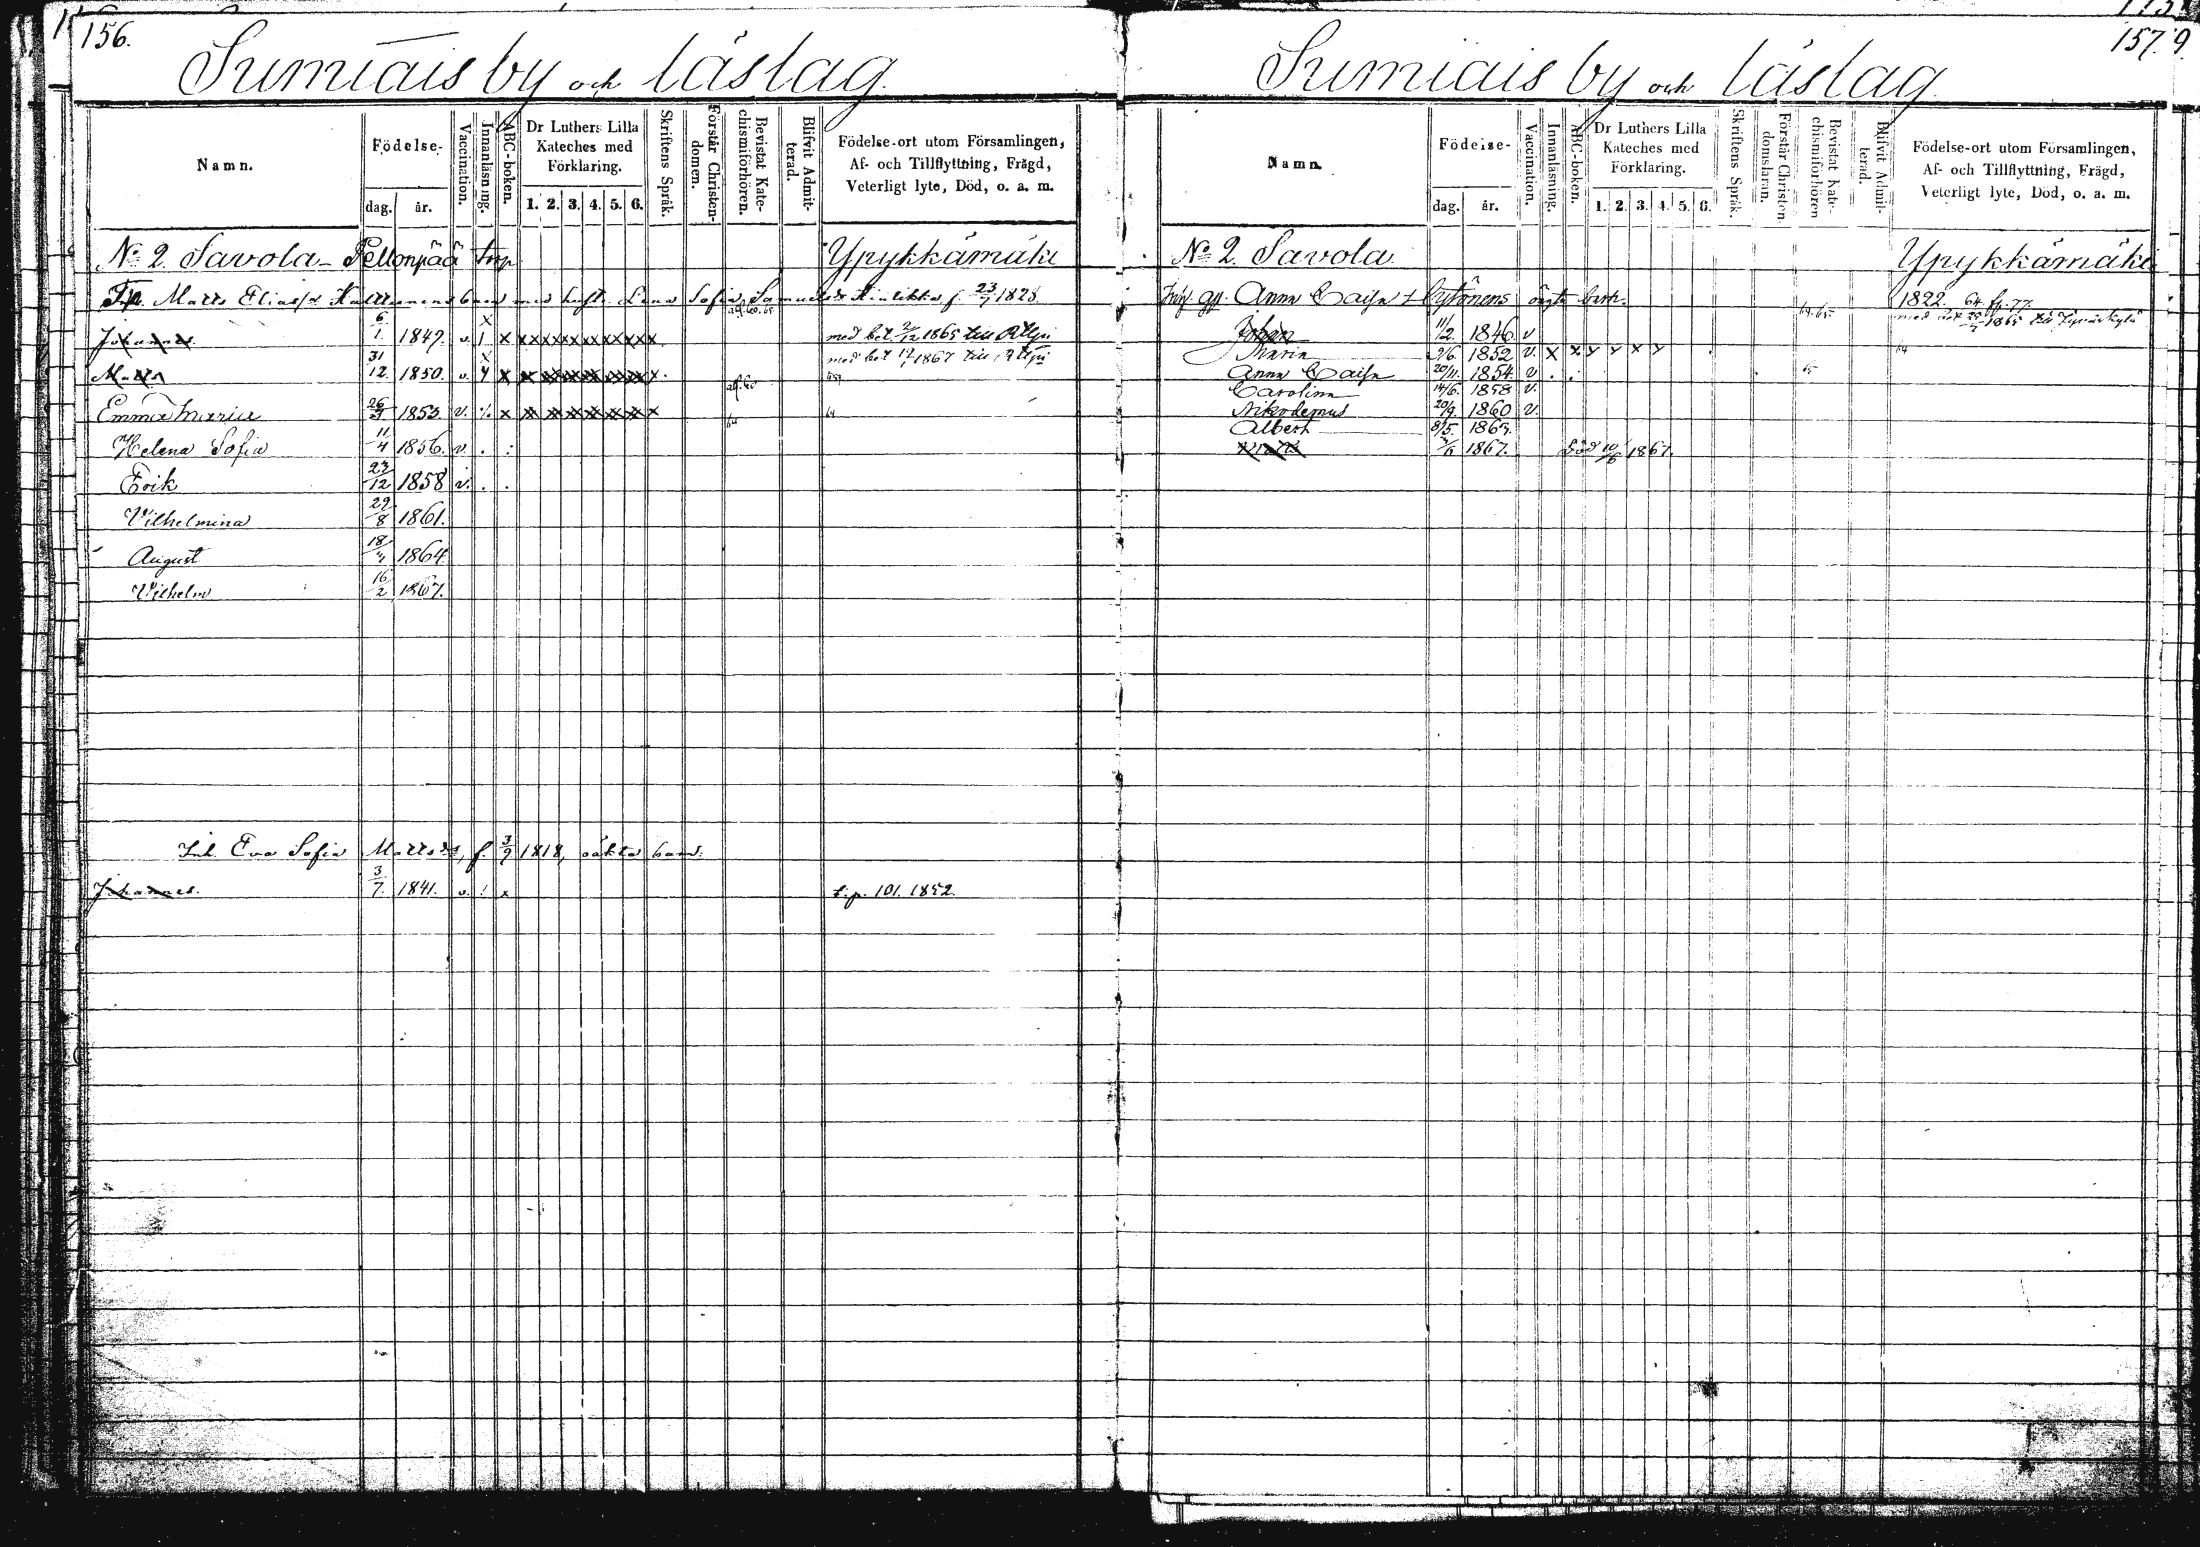 156.
Sumiais by och läslag.
Namn.
Födelse-
dag. år.
Vaccination.
Innanläsning.
ABC-boken.
Dr Luthers Lilla Kateches med Förklaring.
1. 2. 3. 4. 5. 6.
Skriftens Språk.
Förstår Christendomen.
Bevistat Katechismiförhören.
Blifvit Admitterad.
Födelse-ort utom Församlingen,
Af- och Tillflyttning, Frägd,
Veterligt lyte, Död, o. a. m.
No 2 Savola - Pellonpää torp Ypykkämäki
Matts Eliass. barn med hust. Lena Sofia f. 23/7 1828
Johannes 6/1. 1847. v. med bet. 2/12 1865 till
Matts 31/12. 1850. v. med bet 1867 till
Emma Maria 1853 v.
Helena Sofia 11/4 1856. v.
Erik 23/12 1858 v.
Vilhelmina 29/8 1861.
August 18/ 1864
Vilhelm 16/2 1867.
Inh. Eva Sofia Mattsdr, f. 3/9 1818, oäkta barn:
Johannes. 3/7. 1841. v. x t.p. 101. 1852.
157.
Sumiais by och läslag
Namn.
Födelse-
dag. år.
Vaccination.
Innanläsning.
ABC-boken.
Dr Luthers Lilla Kateches med Förklaring.
1. 2. 3. 4. 5. 6.
Skriftens Språk.
Förstår Christendomslaran.
Bevistat Katechismiförhören
Blifvit Admitterad.
Födelse-ort utom Församlingen,
Af- och Tillflyttning, Frägd,
Veterligt lyte, Död, o. a. m.
No 2. Savola Ypykkämäki
Anna Caisa barn. 1822.
Johan 11/2. 1846. v
Maria 9/6. 1852 v.
Anna Caisa 20/11. 1854. v
Carolina 14/6. 1858 v.
Nikodemus 20/9. 1860 v.
Albert 8/5. 1865.
1867. död 10/6 1867.